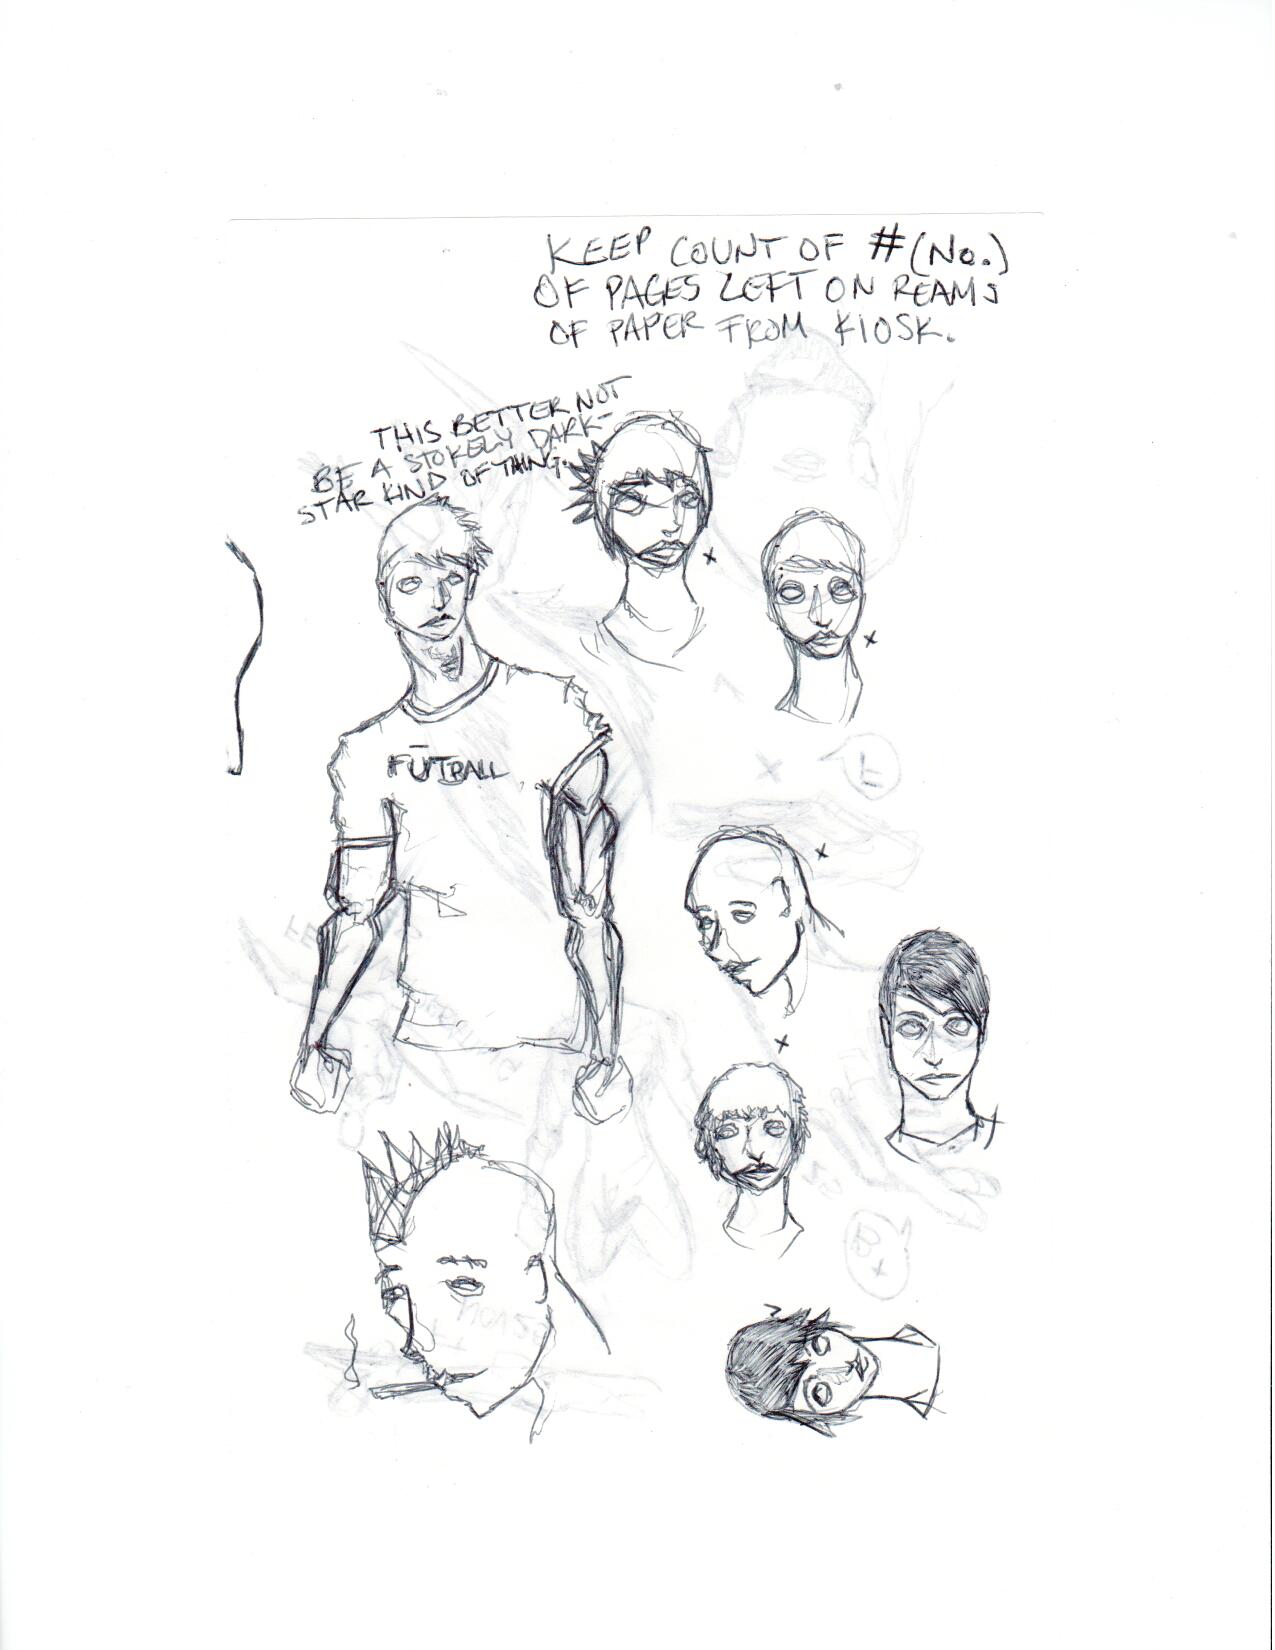 KEEP COUNT OF # (No.)
OF PAGES LEFT ON REAMS
OF PAPER FROM KIOSK.
THIS BETTER NOT
BE A STOKELY DARK-
STAR KIND OF THING.
FŪTBALL